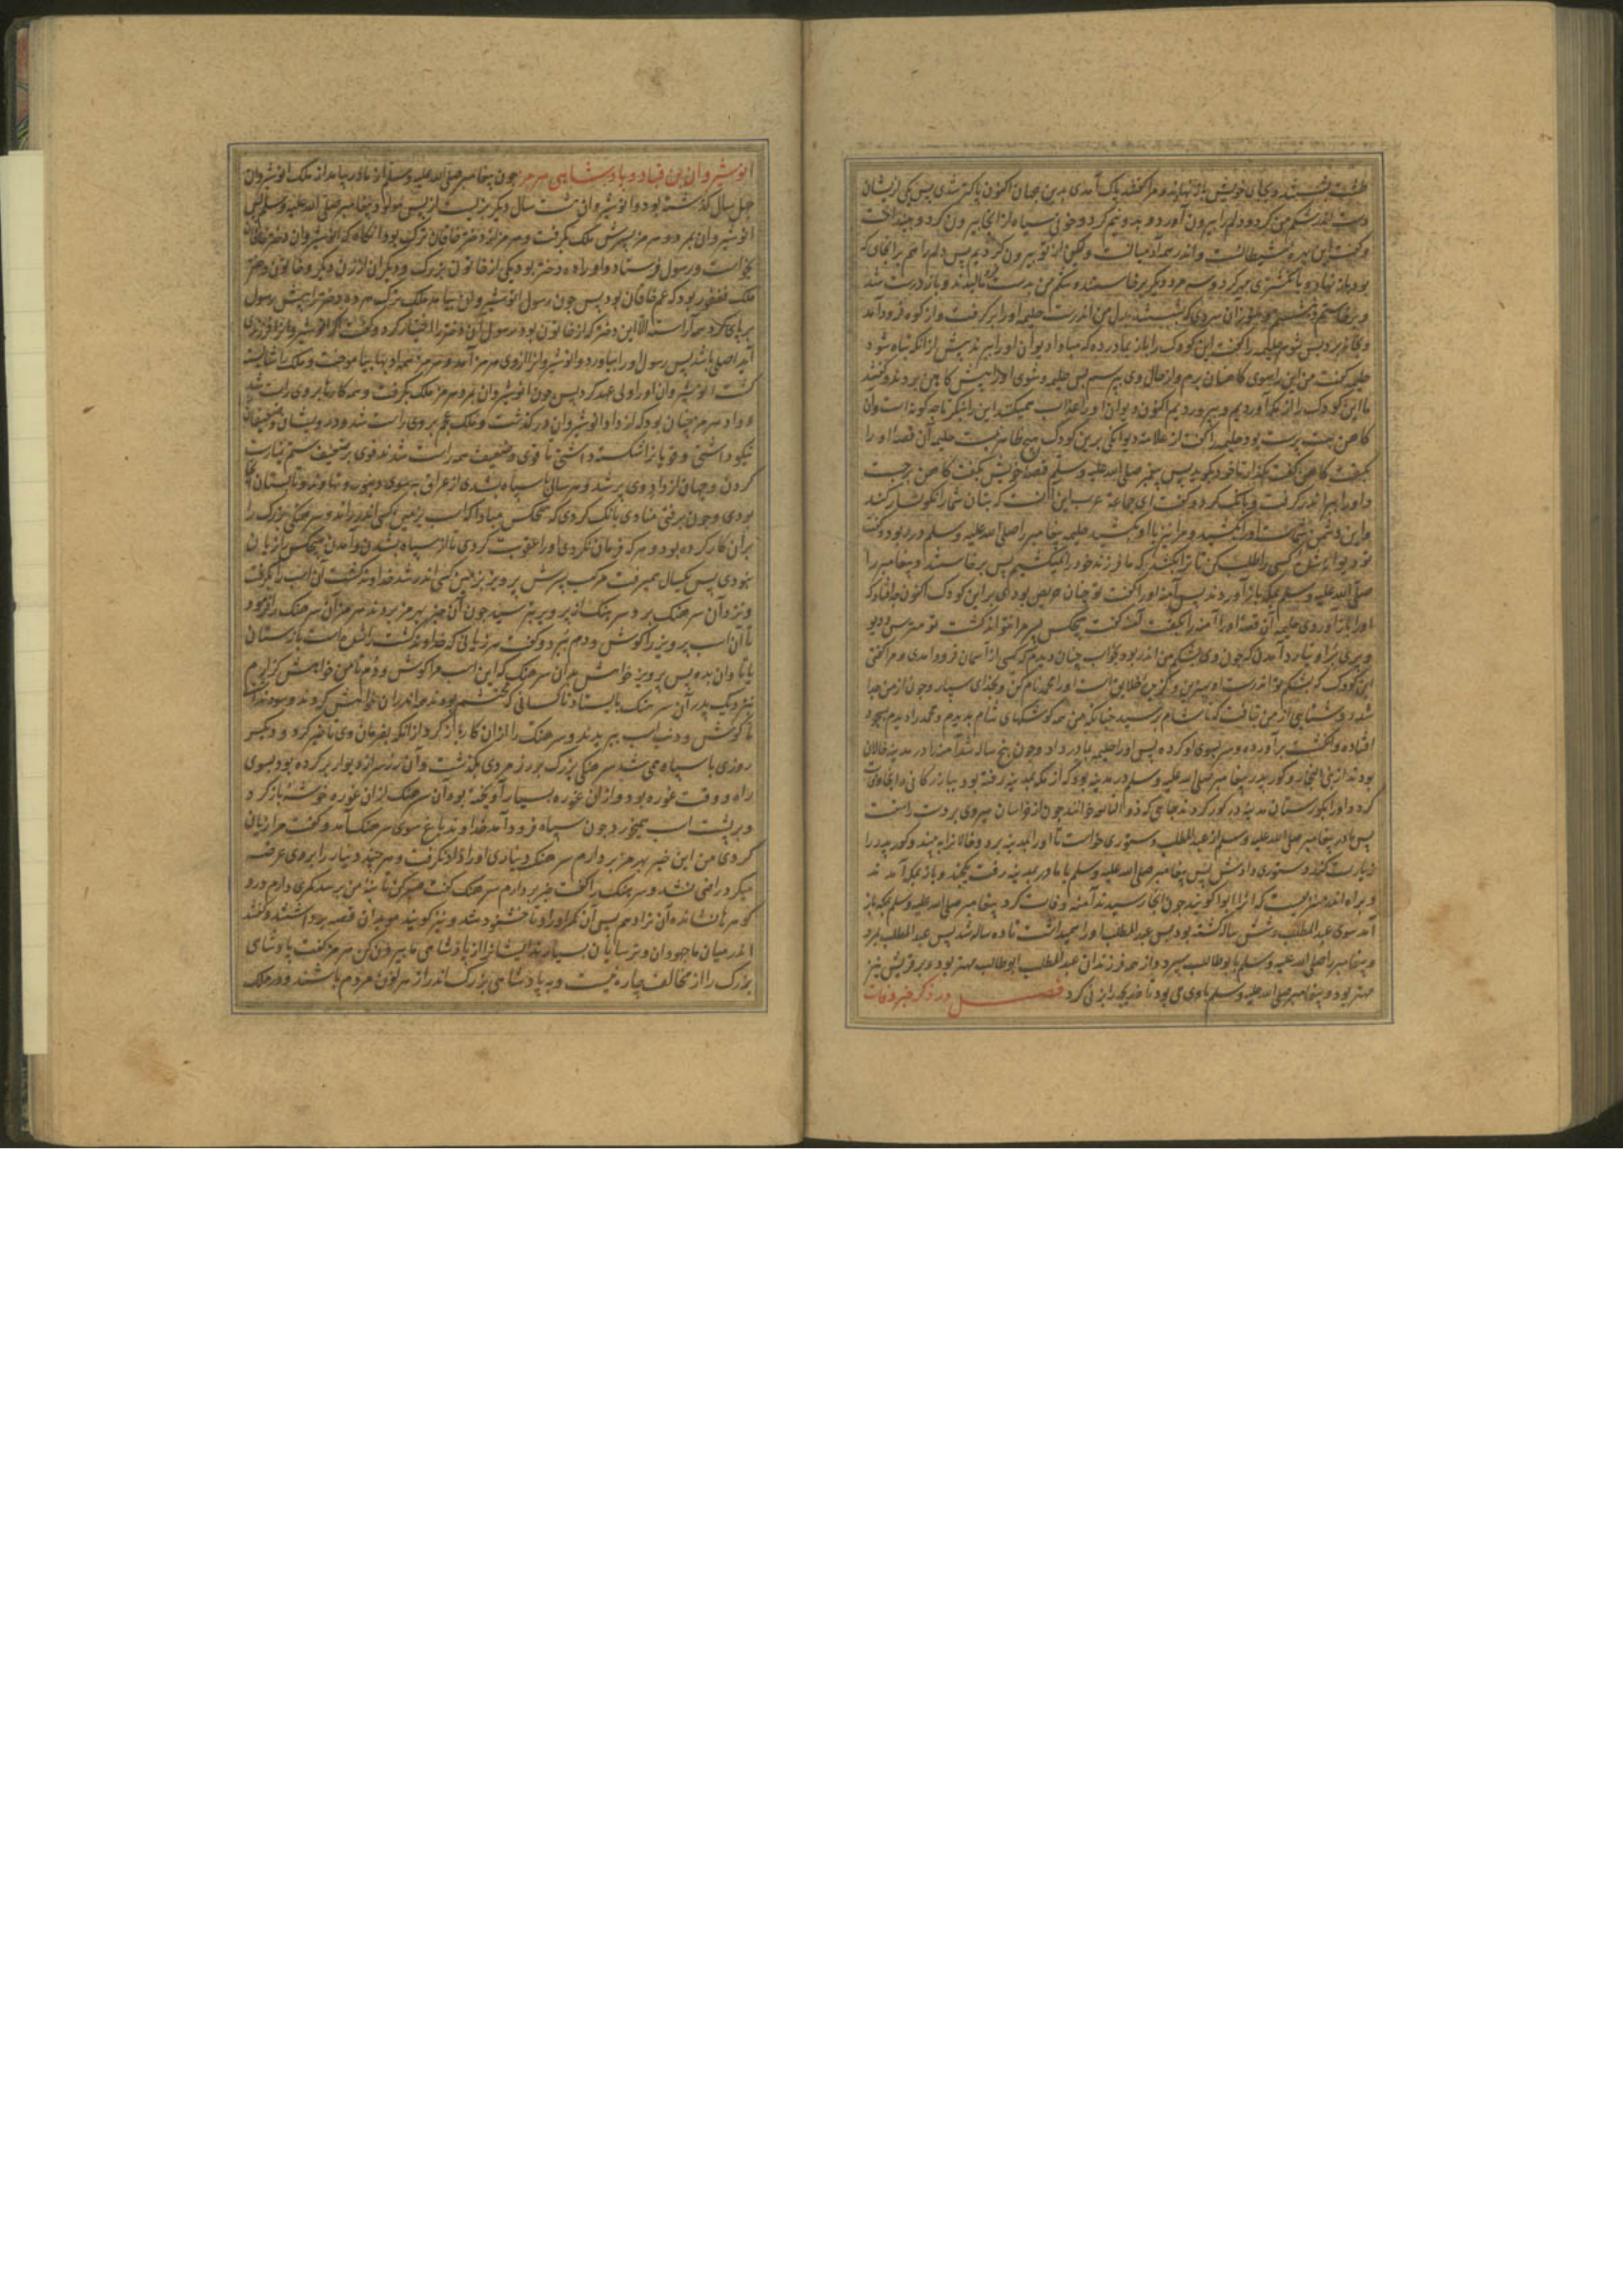 طشت بشستند و بجای خویش باز نهادند و مرا گفتند پاک آمدی بدین جهان اکنون پاکتر شدی پس یکی ازیشان
دست اندر شکم من کرد و دلم را بیرون آورد و بدو نیم کرد و خونی سیاه از انجا بیرون کرد و بینداخت
و گفت این بهره شیطانست و اندر همه ادمیانست و لکن از تو بیرون کردیم پس دلم را هم برانجای که
بود باز نهاد و بانگشتری مهر کرد و سه مرد دیگر برخاستند و شکم من بدست بمالیدند و باز درست شد
و برخاستم
و بخانه برد پس شوی حلیمه را گفت این کودک را باز بمادر ده که مبادا دیوان او را ببرند پیش ازانکه تباه شود
حلیمه گفت من این را سوی کاهنان برم و از حال وی بپرسم پس حلیمه و شوی او را پیش کاهن بردند و گفتند
ما این کودک را از مکه آوردیم و بپروردیم اکنون دیوان او را عذاب همیکنند این را بنگر تا چه گونه است وان
کاهن بت پرست بود حلیمه را گفت از علامت دیوانگی برین کودک هیچ ظاهر نیست حلیمه آن قصه او را
بگفت کاهن گفت بگذار تا خود بگوید پس پیغمبر صلی الله علیه وسلم قصه خویش بگفت کاهن برجست
و او را ببر اندر گرفت و بانگ کرد و گفت ای جماعه عرب این آنست که بتان شما را نگونسار کند
و این دشمن شماست او را بکشید و مرا نیز با او بکشید حلیمه پیغامبر را صلی الله علیه وسلم در ربود و گفت
تو دیوانه شدی کسی را طلب کن تا ترا بکشد که ما فرزند خود را نکشیم پس برخاستند و پیغامبر را
صلی الله علیه وسلم بمکه باز آوردند پس آمنه او را گفت تو چنان حریص بودی بر این کودک اکنون چه افتاد که
او را باز آوردی حلیمه آن قصه او را آمنه را بگفت آمنه گفت هیچکس پسر مرا نتواند کشت تو مترس و دیو
و پری برو نیارد آمدن که چون وی بشکم من اندر بود بخواب چنان دیدم که کسی از آسمان فرود آمدی و مرا گفتی
این کودک که بشکم تو اندرست او بهترین و گزین خلایق است او را محمد نام کن و بخدای سپار و چون از من جدا
شد روشنایی از من بتافت که تا شام برسید چنانکه من همه کوشکهای شام بدیدم و محمد را دیدم بسجود
افتاده و انگشت برآورده و سر بسوی او کرده پس او را حلیمه بمادر داد و چون پنج ساله شد آمنه را در مدینه خالان
بودند از بنی النجار و گور پدر پیغامبر صلی الله علیه وسلم در مدینه بود که از مکه بمدینه رفته بود ببازرگانی و انجا وفات
کرد و او را بگورستان مدینه در گور کردند جایی که ذو النابغه خوانند چون از خراسان بیروی بر دست راست
پس مادر پیغامبر صلی الله علیه وسلم از عبدالمطلب دستوری خواست تا او را بمدینه برد و خالانرا به بیند و گور پدر را
زیارت کند دستوری دادش پس پیغامبر صلی الله علیه وسلم با مادر بمدینه رفت بیکجند و باز بمکه آمدند
و براه اندر منزلیست که انرا ابوا گویند چون انجا رسیدند آمنه وفات کرد پیغامبر صلی الله علیه وسلم بمکه باز
آمد سوی عبدالمطلب و شش ساله گشته بود پس عبدالمطلب او را همیداشت تا ده ساله شد پس عبدالمطلب بمرد
و پیغامبر را صلی الله علیه وسلم بابوطالب سپرد و از همه فرزندان عبدالمطلب ابوطالب مهتر بود و بر قریش نیز
مهتر بود و پیغامبر صلی الله علیه وسلم با وی می بود تا خدیجه را بزنی کرد فصل در ذکر خبر وفات
انوشیروان بن قباد و پادشاهی هرمز چون پیغامبر صلی الله علیه وسلم از مادر بیامد از ملک انوشیروان
چهل سال گذشته بود و انوشیروان هشت سال دیگر بزیست از پس مولود پیغامبر صلی الله علیه وسلم پس
انوشیروان بمرد و هرمز پسرش ملک بگرفت و هرمز از دختر خاقان ترک بود و آنگاه که انوشیروان دختر خاقان
بخواست و رسول فرستاد و او را ده دختر بود یکی از خاتون بزرگ و دیگران از زن دیگر و خاتون دختر
ملک فغفور بود که عم خاقان بود پس چون رسول انوشیروان بیامد ملک ترک هر ده دختر را پیش رسول
بر پای کرد همه آراسته الا این دختر که از خاتون بود رسول این دختر را اختیار کرد و گفت اگر انوشیروان را فرزندی
آید اصلی باشد پس رسول او را بیاورد و انوشیروانرا از وی هرمز آمد و هرمز همه ادبها بیاموخت و ملک را شایسته
گشت انوشیروان او را ولی عهد کرد پس چون انوشیروان بمرد هرمز ملک بگرفت و همه کارها بر وی راست شد
و داد هرمز چنان بود که از داد انوشیروان درگذشت و ملک عجم بر وی راست شد و درویشان و ضعیفان
نیکو داشتی و قویانرا شکسته داشتی تا قوی و ضعیف همه راست شدند قوی بر ضعیف ستم نیارست
کردن و جهان از داد وی پر شد و هر سال با سپاه بشدی از عراق بسوی دینور و نهاوند و تابستان انجا
بودی و چون برفتی منادی بانگ کردی که هیچکس مبادا که اسب بزمین کسی اندر راند و سرهنگی بزرگ را
بران کار کرده بود و هر که فرمان نکردی او را عقوبت کردی تا از سپاه بشدن و آمدن هیچکس را زیان
نبودی پس یکسال همیرفت مرکب پسرش پرویز بزمین کسی اندر شد خداوند کشت آن اسب را بگرفت
و نزد آن سرهنگ برد سرهنگ از پرویز بترسید چون آن خبر بهرمز بردند هرمز آن سرهنگ را فرمود
تا آن اسب پرویز را گوش و دم ببرد و گفت هر زیانی که خداوند کشت را شده است باز ستان
یا تاوان بده پس پرویز خواهش بدان سرهنگ کرد که این اسب مرا گوش و دم تا من خواهش
نزدیک پدر آن سرهنگ بایستاد تا کسانی که محتشم بودند اندران خواهش کردند و سود نداشت
تا گوش و دنب اسب ببریدند و سرهنگ را ازان کار باز کرد ازانکه بفرمان وی تاخیر کرد و دیگر
روزی با سپاه همی شد سرهنگی بزرگ بر رز مردی بگذشت و آن رز سر از دیوار بر کرده بود بسوی
راه و وقت غوره بود و ازان غوره بسیار آویخته بود آن سرهنگ ازان غوره خوشه باز کرد
و بر پشت اسب همیخورد چون سپاه فرود آمد خداوند باغ سوی سرهنگ آمد و گفت مرا زیان
کردی من این خبر بهرمز بردارم سرهنگ دیناری او را داد نگرفت و هر چند دینار را بر وی عرضه
میکرد راضی نشد و سرهنگ را گفت خبر بردارم سرهنگ گفت صبر کن تا بنه من برسد کمری دارم درو
گوهرها نشانده آن ترا دهم پس آن کمر او را داد تا خشنود شد و نیز گویند موبدان قصه برداشتند و گفتند
اندر میان ما جهودان و ترسایان بسیارند ایشانرا از پادشاهی ما بیرون کن هرمز گفت پادشاهی
بزرگ را از مخالف چاره نیست و به پادشاهی بزرگ اندر از هر لون مردم باشند و در ملک